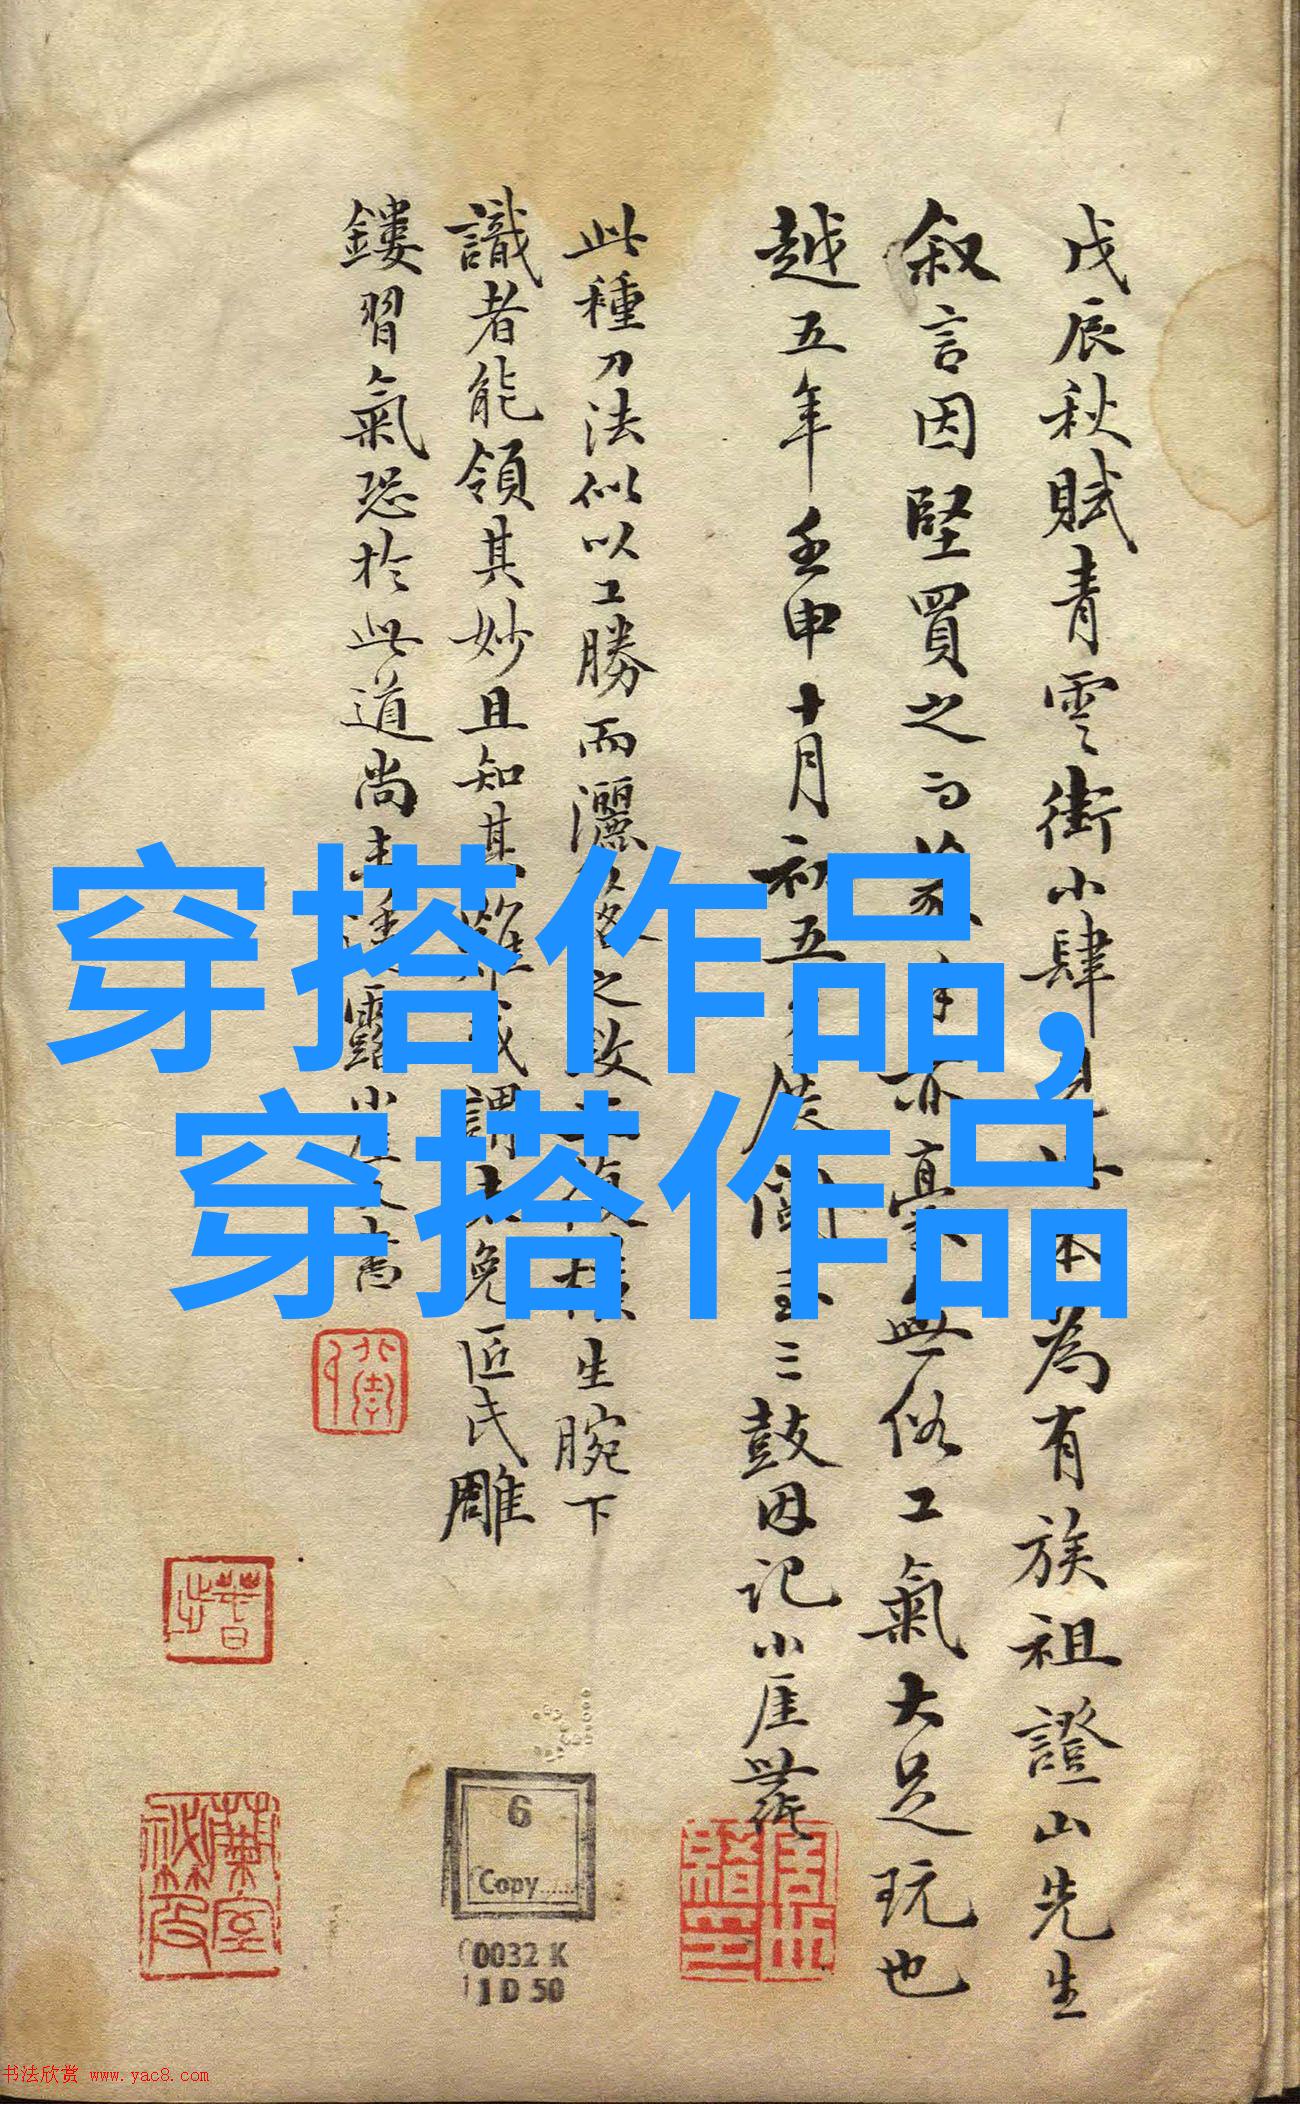 戊辰秋賦青雲街小肆見此本為有族祖證山先生
叙言因堅買之而亦無俗工氣大足玩也
越五年壬申十月初五閱至三鼓因記小厓
此種刀法似以工勝而灑落之致生腕下
識者能領其妙且知其難或謂未免匠氏雕
鏤習氣恐於此道尚未小厓又書
穿搭作品,
穿搭作品
6
Copy......
0032 K
1 D 50
书法欣赏 www.yac8.com